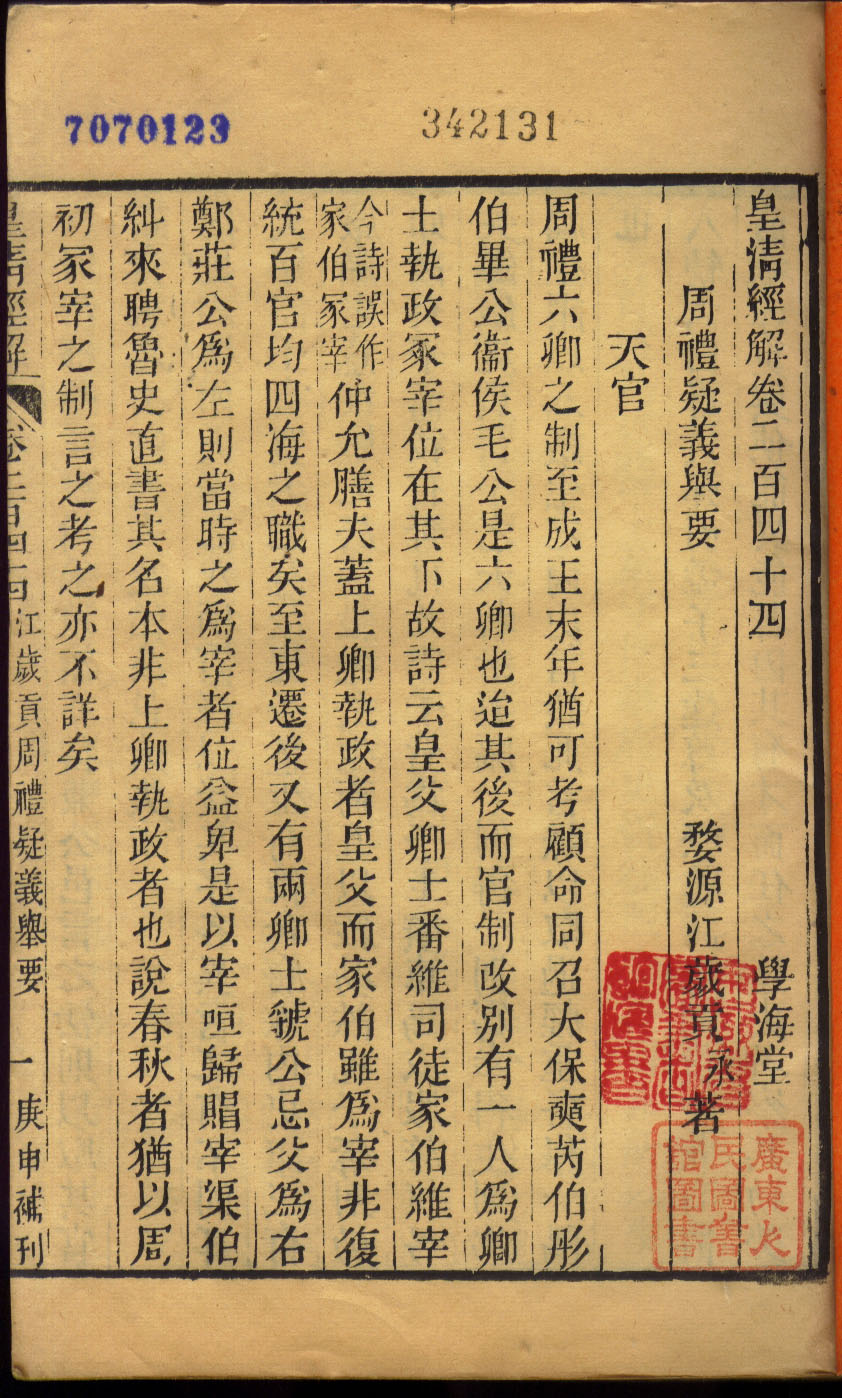 7070123
342131
皇清經解卷二百四十四
學海堂
周禮疑義舉要
婺源江歲貢永著
天官
周禮六卿之制至成王末年猶可考顧命同召大保奭芮伯彤
伯畢公衞侯毛公是六卿也迨其後而官制改別有一人爲卿
士執政冢宰位在其下故詩云皇父卿士番維司徒家伯維宰
今詩誤作
家伯冢宰
仲允膳夫蓋上卿執政者皇父而家伯雖爲宰非復
統百官均四海之職矣至東遷後又有兩卿士虢公忌父爲右
鄭莊公爲左則當時之爲宰者位益卑是以宰咺歸賵宰渠伯
糾來聘魯史直書其名本非上卿執政者也說春秋者猶以周
初冢宰之制言之考之亦不詳矣
皇清經解
卷二百四十四
江歲貢周禮疑義舉要
一
庚申補刊
廣東人
民圖書
館圖書